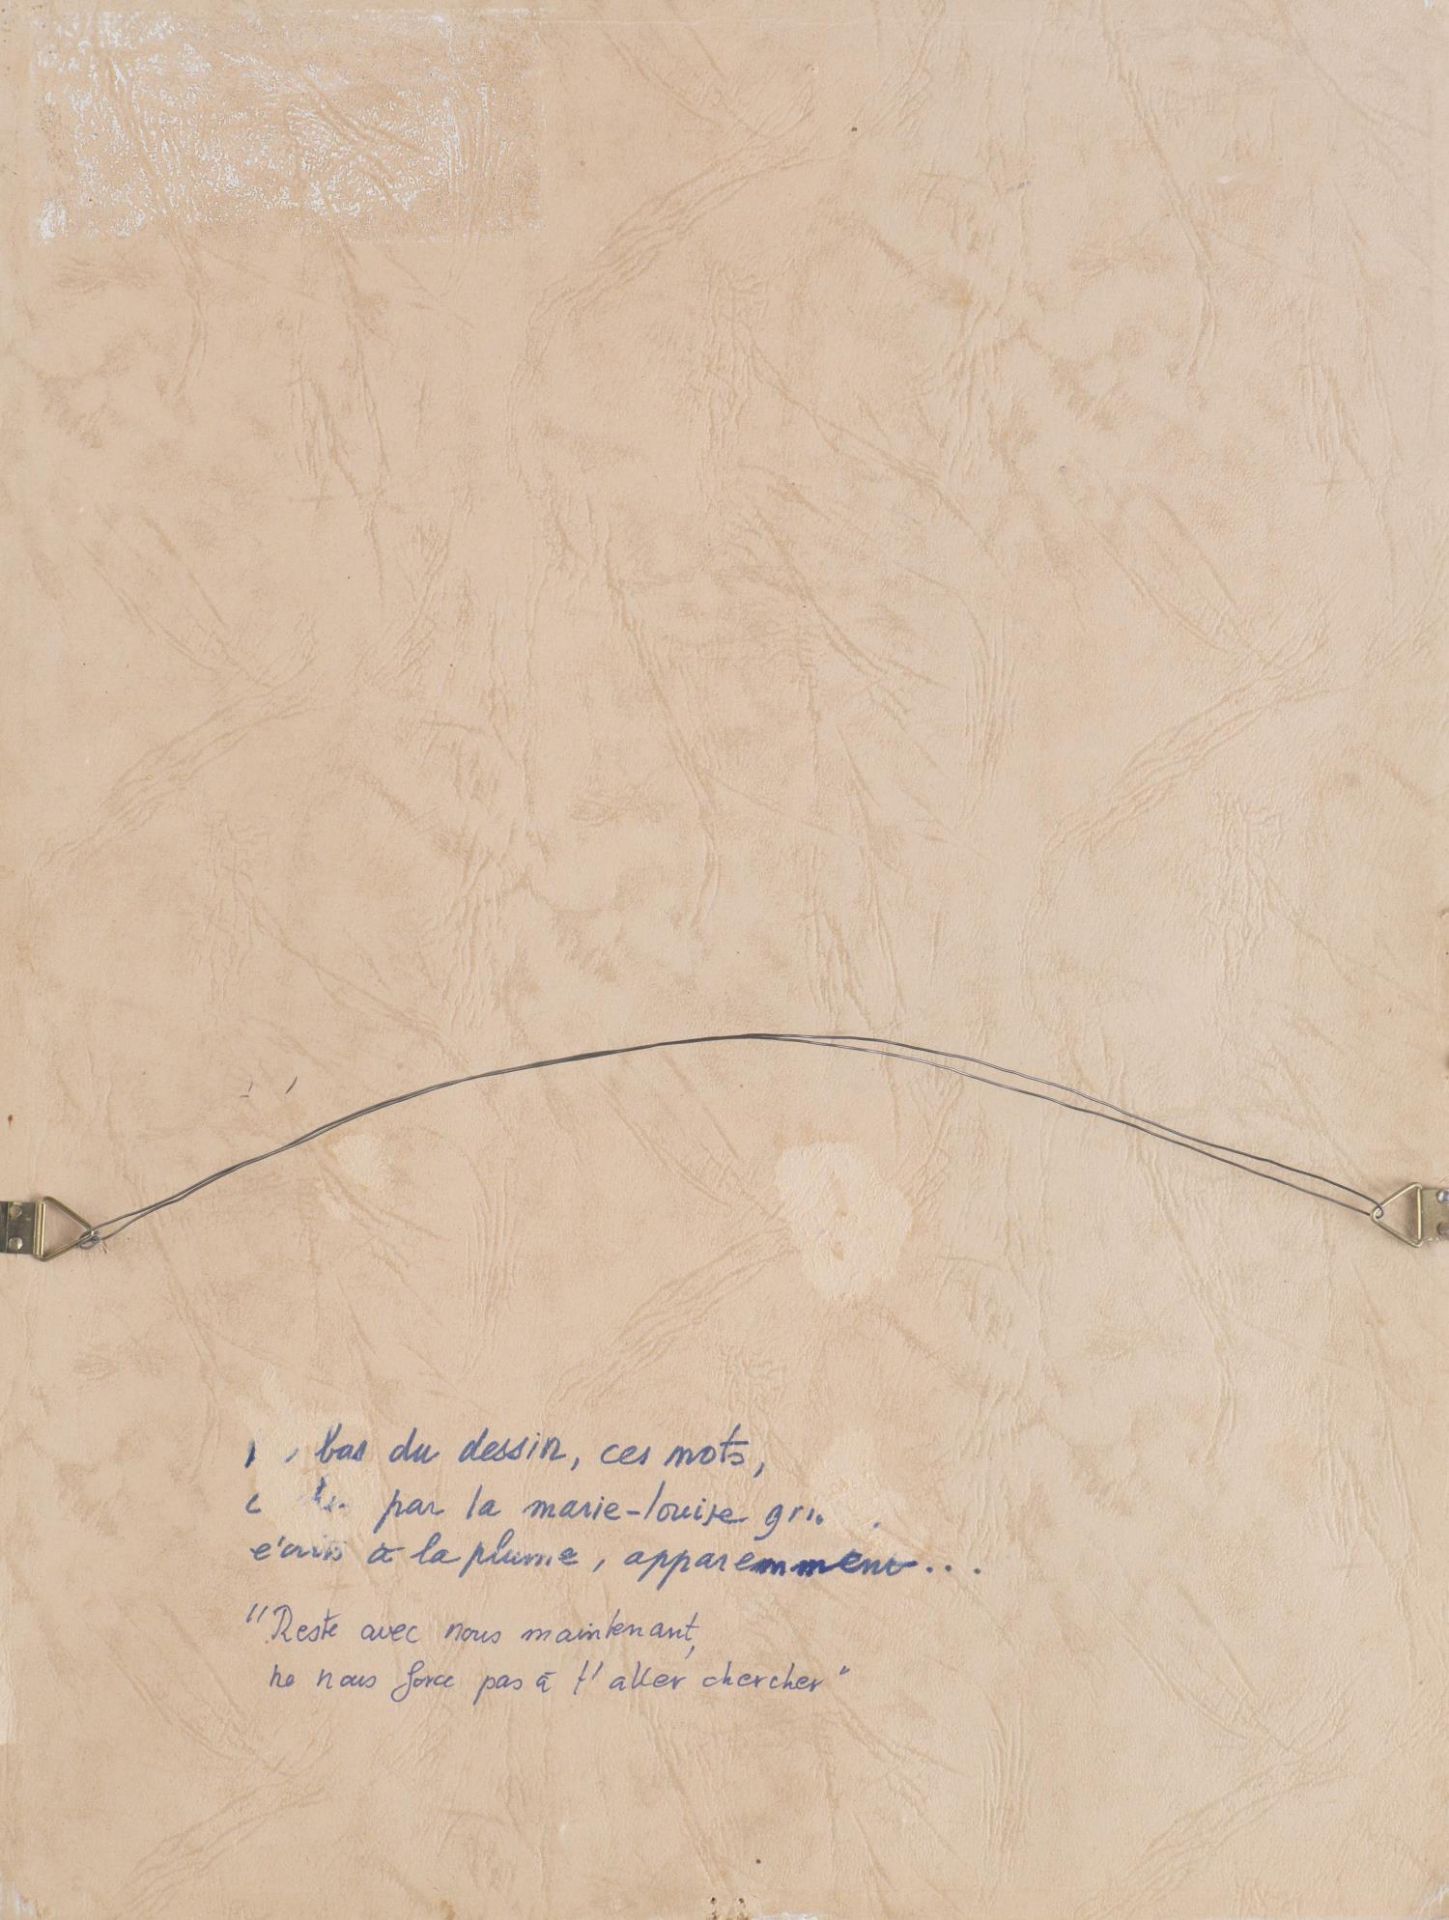 bas du dessin, ces mots,
par la marie-louise
écrits à la plume, apparemment...
"Reste avec nous maintenant,
ne nous force pas à t'aller chercher"